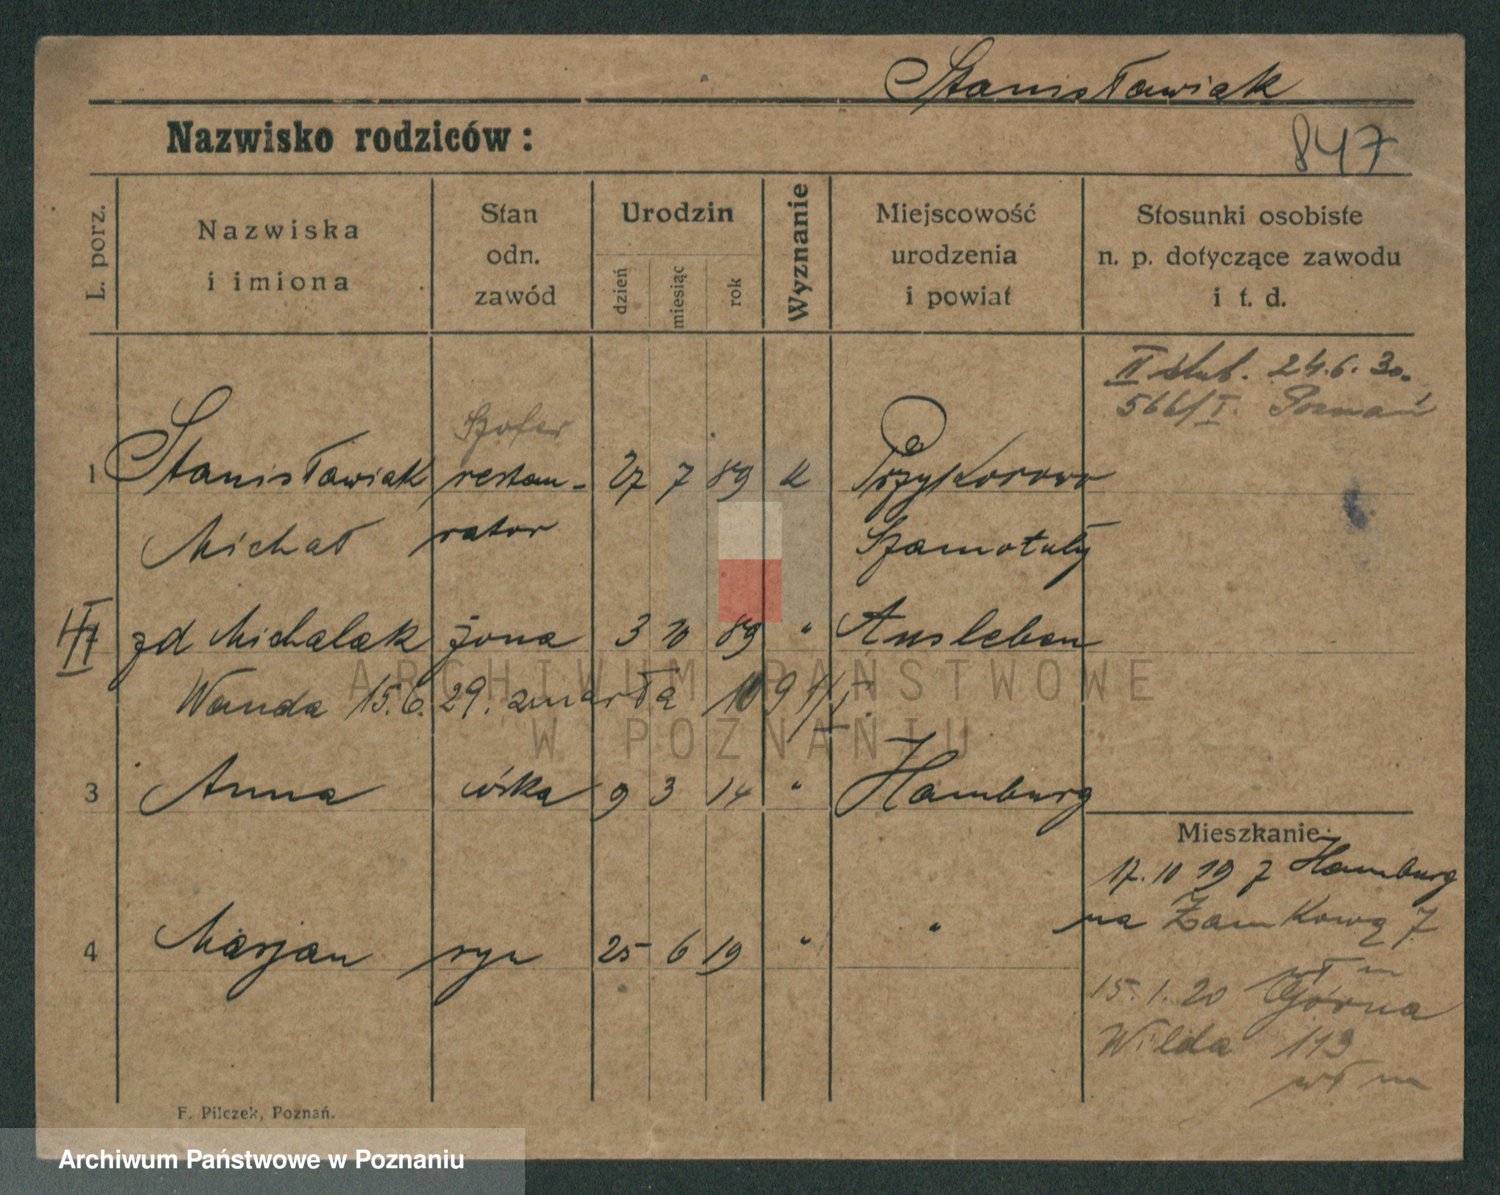 Stanisławiak
Nazwisko rodziców:
847
L. porz.
Nazwiska
i imiona
Stan
odn.
zawód
Urodzin
dzień
miesiąc
rok
Wyznanie
Miejscowość
urodzenia
i powiat
Stosunki osobiste
n. p. dotyczące zawodu
i t. d.
II ślub. 24.6.30.
566/I. Poznań
Szofer
1 Stanisławiak restau- 27 7 89 k Przyborowo
Michał rator Szamotuły
zd Michalak żona 3 10 89 " Ausleben
Wanda 15.6.29. zmarła
3 Anna córka 9 3 14 " Hamburg
Mieszkanie:
17.10 19 z Hamburg
na Zamkową 7
4 Marjan syn 25 6 19 " "
15.1.20 Górna
Wilda 119
F. Pilczek, Poznań.
ARCHIWUM PAŃSTWOWE
W POZNANIU
Archiwum Państwowe w Poznaniu